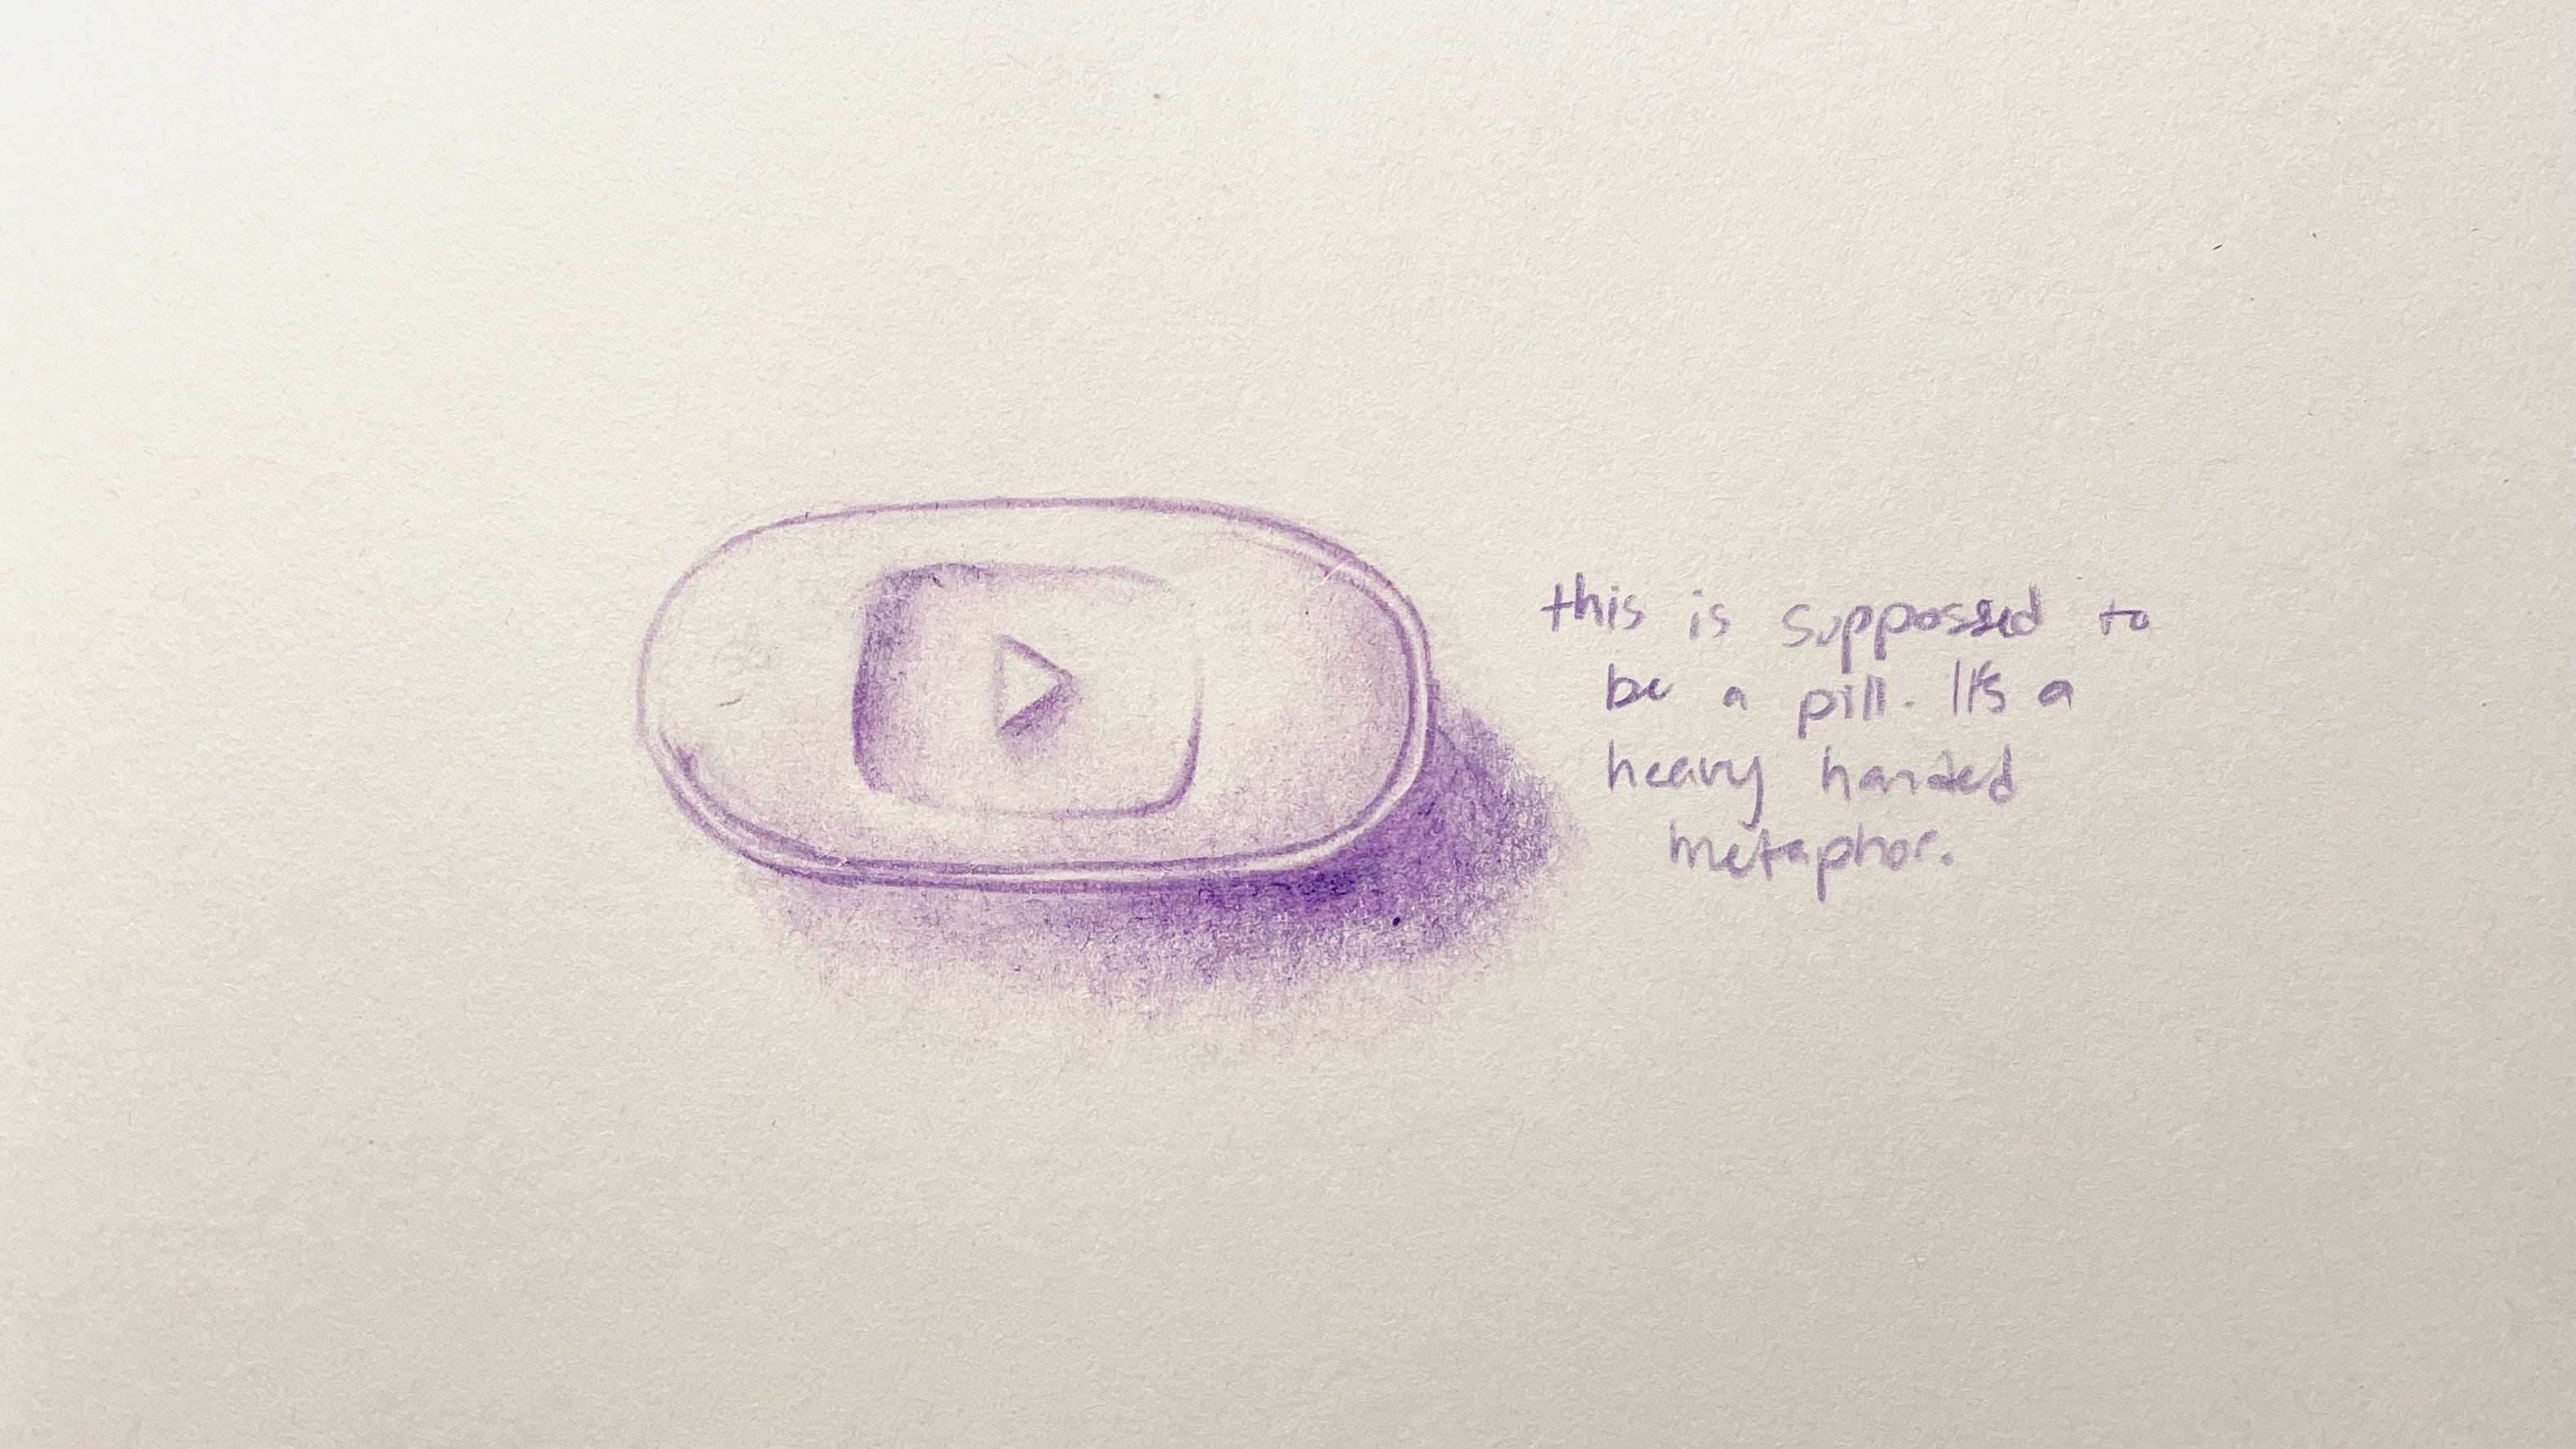 this is suppossed to
be a pill. It's a
heavy handed
metaphor.